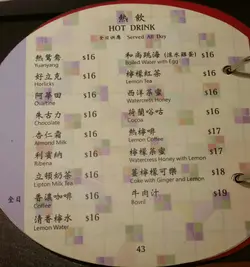 熱飲
HOT DRINK
全日供應 Served All Day
熱鴛鴦 $16
Yuanyang
好立克 $16
Horlicks
阿華田 $16
Ovaltine
朱古力 $16
Chocolate
杏仁霜 $16
Almond Milk
利賓納 $16
Ribena
立頓奶茶 $16
Lipton Milk Tea
香濃咖啡 $16
Coffee
清香檸水 $16
Lemon Water
和尚跳海 (滾水雞蛋) $16
Boiled Water with Egg
檸檬紅茶 $16
Lemon Tea
西洋菜蜜 $16
Watercress Honey
荷蘭唂咕 $16
Cocoa
熱檸啡 $17
Lemon Coffee
檸檬菜蜜 $17
Watercress Honey with Lemon
薑檸檬可樂 $18
Coke with Ginger and Lemon
牛肉汁 $19
全日
43